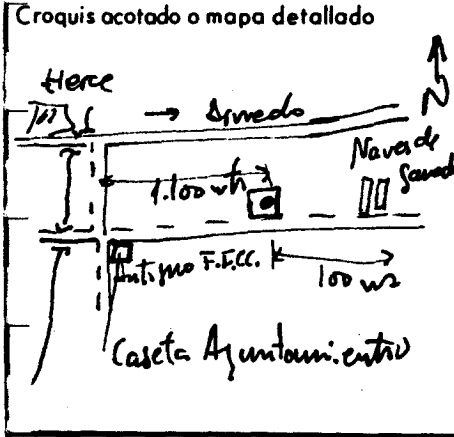 Croquis acotado o mapa detallado
Herce
→ Arnedo
N
Naves de
Ganado
1.100 m
Antiguo F.F.C.C.
100 ms
Caseta Ayuntamiento